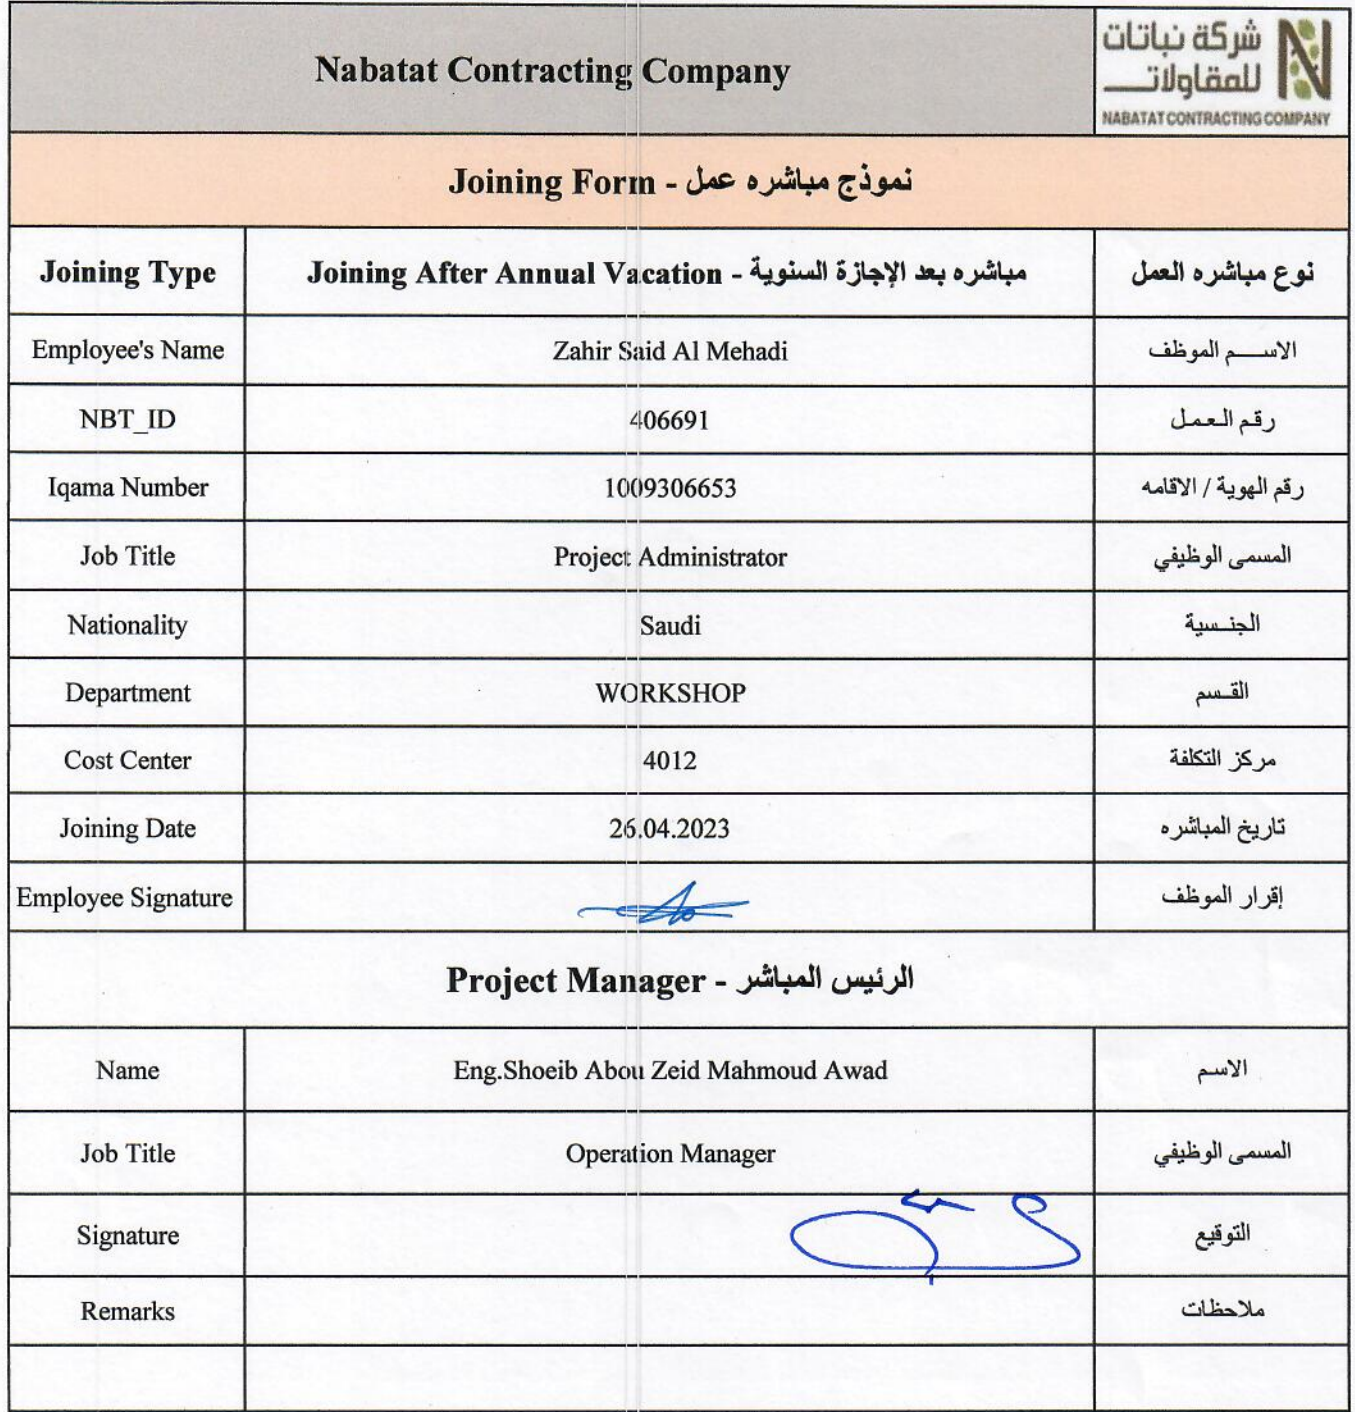 Nabatat Contracting Company
شركة نباتات
للمقاولات
NABATAT CONTRACTING COMPANY
Joining Form - نموذج مباشره عمل
Joining Type Joining After Annual Vacation - مباشره بعد الإجازة السنوية نوع مباشره العمل
Employee's Name Zahir Said Al Mehadi الاســم الموظف
NBT_ID 406691 رقم العمل
Iqama Number 1009306653 رقم الهوية / الاقامه
Job Title Project Administrator المسمى الوظيفي
Nationality Saudi الجنـسية
Department WORKSHOP القـسم
Cost Center 4012 مركز التكلفة
Joining Date 26.04.2023 تاريخ المباشره
Employee Signature إقرار الموظف
Project Manager - الرئيس المباشر
Name Eng.Shoeib Abou Zeid Mahmoud Awad الاسم
Job Title Operation Manager المسمى الوظيفي
Signature التوقيع
Remarks ملاحظات